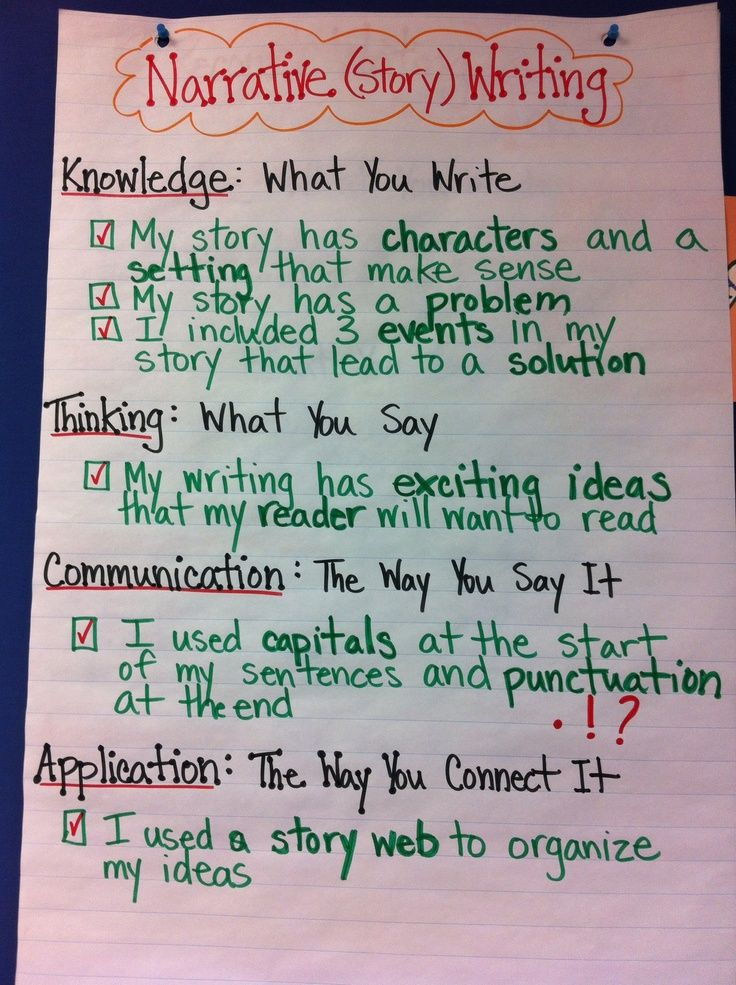 Narrative (Story) Writing
Knowledge: What You Write
My story has characters and a
setting that make sense
My story has a problem
I included 3 events in my
story that lead to a solution
Thinking: What You Say
My writing has exciting ideas
that my reader will want to read
Communication: The Way You Say It
I used capitals at the start
of my sentences and punctuation
at the end
. ! ?
Application: The Way You Connect It
I used a story web to organize
my ideas